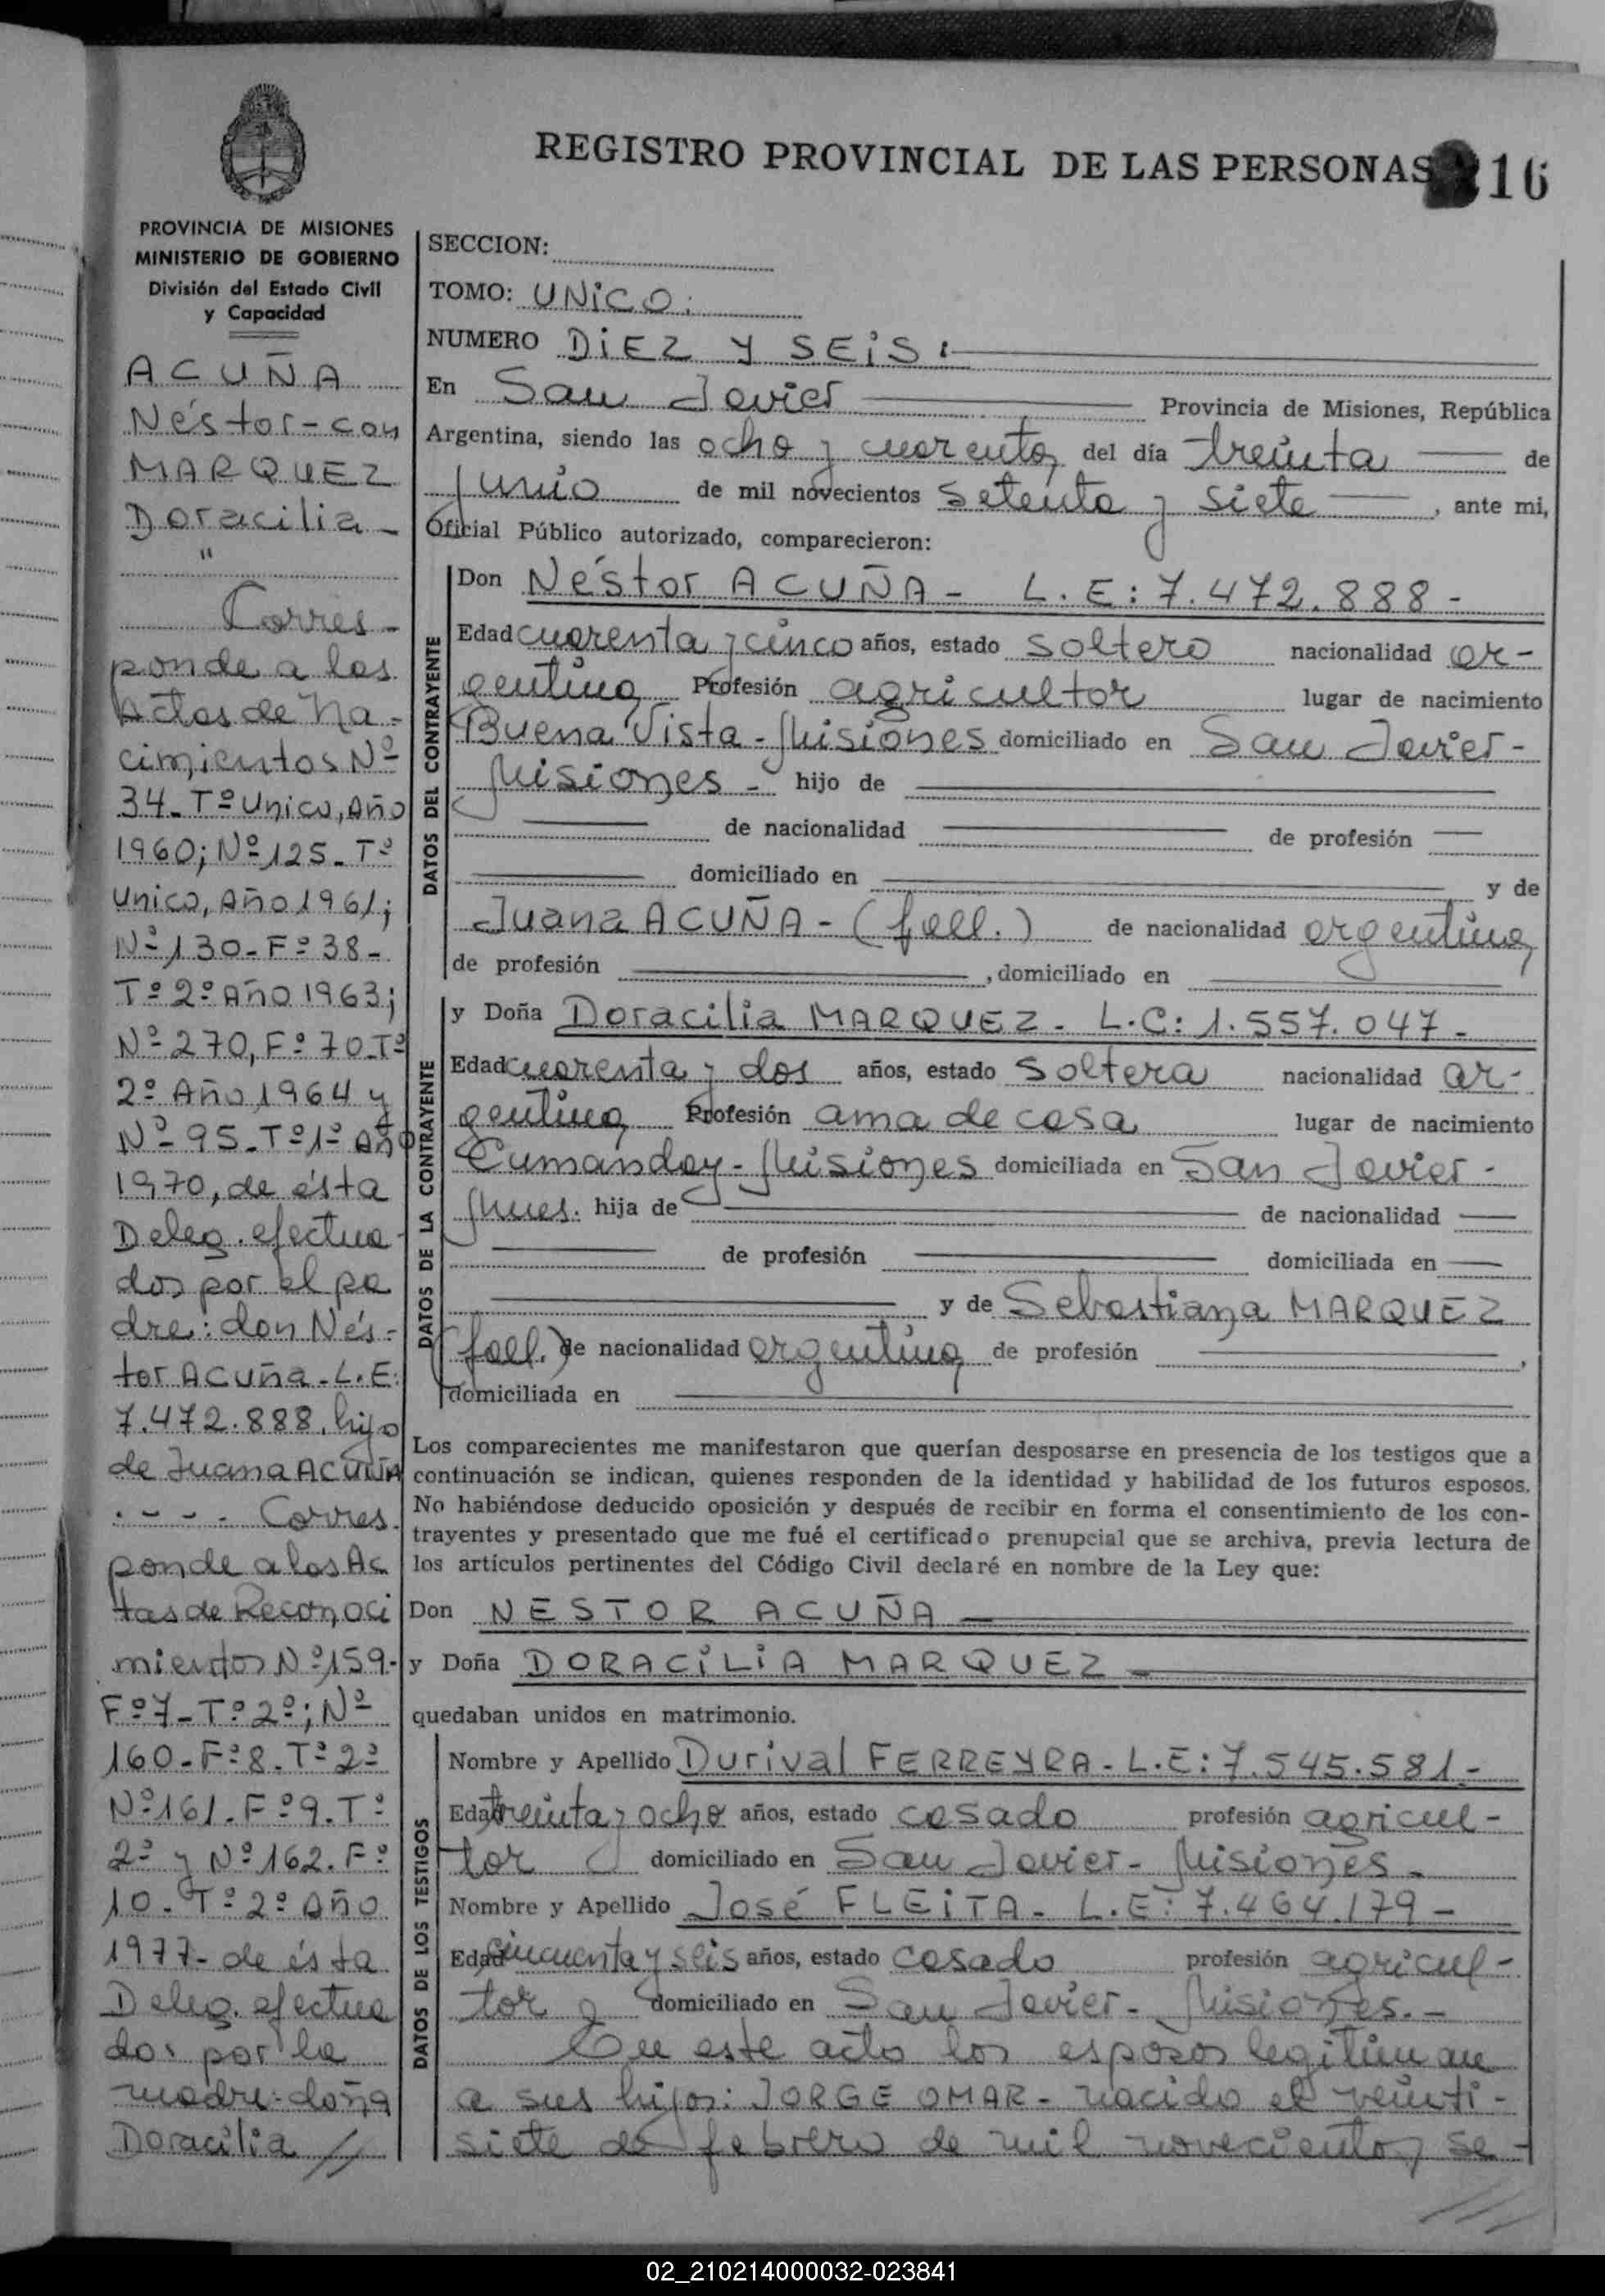 REGISTRO PROVINCIAL DE LAS PERSONAS 16
PROVINCIA DE MISIONES
MINISTERIO DE GOBIERNO
División del Estado Civil
y Capacidad
ACUÑA
Néstor - con
MARQUEZ
Doracilia -
"
Corres-
ponde a las
Actas de Na-
cimientos Nº
34 - Tº Unico, Año
1960; Nº 125 - Tº
Unico, Año 1961;
Nº 130 - Fº 38 -
Tº 2º Año 1963;
Nº 270, Fº 70 - Tº
2º Año 1964 y
Nº 95 - Tº 1º Año
1970, de ésta
Deleg. efectua-
dos por el pa
dre: don Nés-
tor Acuña - L.E:
7.472.888, hijo
de Juana ACUÑA
. - - . Corres.
ponde a las Ac
tas de Reconoci
mientos Nº 159 -
Fº 7 - Tº 2º; Nº
160 - Fº 8 - Tº 2º
Nº 161 - Fº 9 - Tº
2º y Nº 162 - Fº
10 - Tº 2º Año
1977 - de ésta
Deleg. efectua
dos por la
madre: doña
Doracilia //
SECCION:
TOMO: UNICO.
NUMERO DIEZ Y SEIS:
En San Javier Provincia de Misiones, República
Argentina, siendo las ocho y cuarenta, del día treinta de
junio de mil novecientos setenta y siete, ante mi,
Oficial Público autorizado, comparecieron:
DATOS DEL CONTRAYENTE
Don Néstor ACUÑA - L.E: 7.472.888 -
Edad cuarenta y cinco años, estado soltero nacionalidad ar-
gentina Profesión agricultor lugar de nacimiento
Buena Vista - Misiones domiciliado en San Javier -
Misiones - hijo de
de nacionalidad de profesión
domiciliado en y de
Juana ACUÑA - (fall.) de nacionalidad argentina,
de profesión , domiciliado en
DATOS DE LA CONTRAYENTE
y Doña Doracilia MARQUEZ - L.C: 1.557.047 -
Edad cuarenta y dos años, estado soltera nacionalidad ar-
gentina Profesión ama de casa lugar de nacimiento
Cumanday - Misiones domiciliada en San Javier -
Mnes. hija de de nacionalidad
de profesión domiciliada en
y de Sebastiana MARQUEZ
(fall.) de nacionalidad argentina de profesión ,
domiciliada en
Los comparecientes me manifestaron que querían desposarse en presencia de los testigos que a
continuación se indican, quienes responden de la identidad y habilidad de los futuros esposos.
No habiéndose deducido oposición y después de recibir en forma el consentimiento de los con-
trayentes y presentado que me fué el certificado prenupcial que se archiva, previa lectura de
los artículos pertinentes del Código Civil declaré en nombre de la Ley que:
Don NESTOR ACUÑA
y Doña DORACILIA MARQUEZ
quedaban unidos en matrimonio.
DATOS DE LOS TESTIGOS
Nombre y Apellido Durival FERREYRA - L.E: 7.545.581 -
Edad treinta y ocho años, estado casado profesión agricul-
tor domiciliado en San Javier - Misiones -
Nombre y Apellido José FLEITA - L.E: 7.464.179 -
Edad cincuenta y seis años, estado casado profesión agricul-
tor y domiciliado en San Javier - Misiones. -
En este acto los esposos legitiman
a sus hijos: JORGE OMAR - nacido el veinti-
siete de febrero de mil novecientos se-
///
02_210214000032-023841